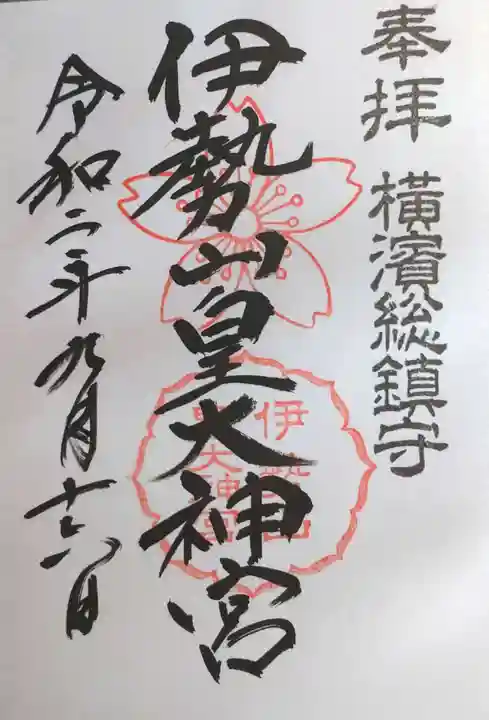 奉拝 横濱総鎮守
伊勢山皇大神宮
伊勢山
皇大神宮
令和二年九月十六日